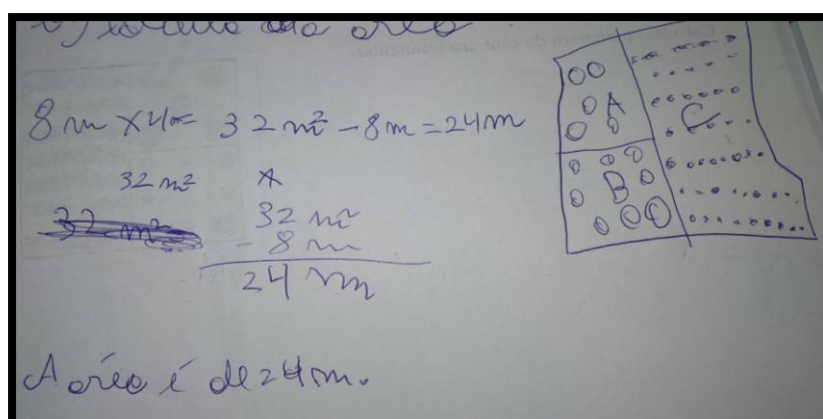 8m x 4m = 32 m² - 8m = 24m
32 m² A
32 m²
32 m²
- 8 m
24 m
A
B
C
A área é de 24m.